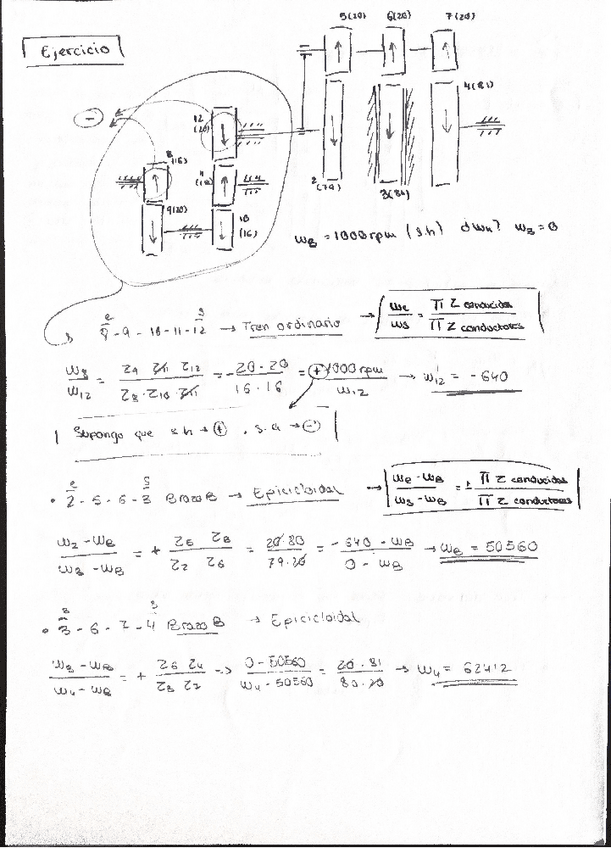 Ejercicio
5(20) 6(20) 7(20)
12
(20)
8
(16)
11
4(81)
9(20)
10
(16)
2
(79)
3(80)
ω8 = 1000 rpm (s.h) ¿ω4? ω3 = 0
8 - 9 - 10 - 11 - 12 → Tren ordinario → ωe/ωs = Π Z conducidas / Π Z conductores
ω8/ω12 = Z9 Z11 Z12 / Z8 · Z10 · Z11 = - 20 · 20 / 16 · 16 = +1000 rpm / ω12 → ω12 = -640
Supongo que s.h → + , s.a → -
• 2 - 5 - 6 - 3 Brazo B → Epicicloidal → ωe - ωB / ωs - ωB = ± Π Z conducidas / Π Z conductores
= + = 20·80 / 79·20 = -640 - ωB / 0 - ωB → ωB = 50560
• 3 - 6 - 7 - 4 Brazo B → Epicicloidal
ω3 - ωB / ω4 - ωB = + Z6 Z4 / Z3 Z7 → 0 - 50560 / ω4 - 50560 = 20 · 81 / 80 · 20 → ω4 =